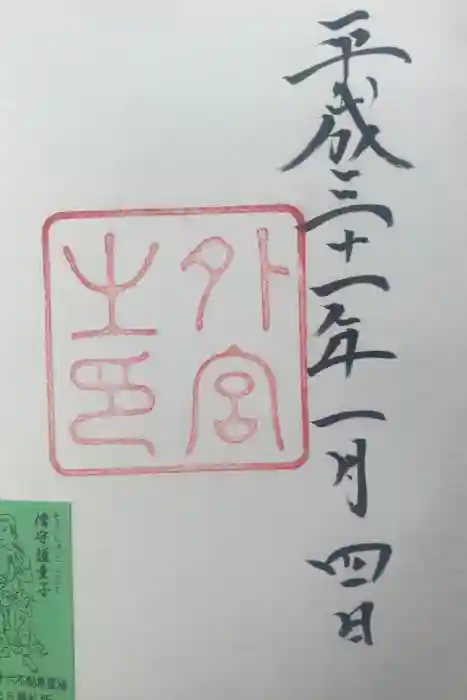 平成三十一年一月四日
外宮
之印
倍守護童子